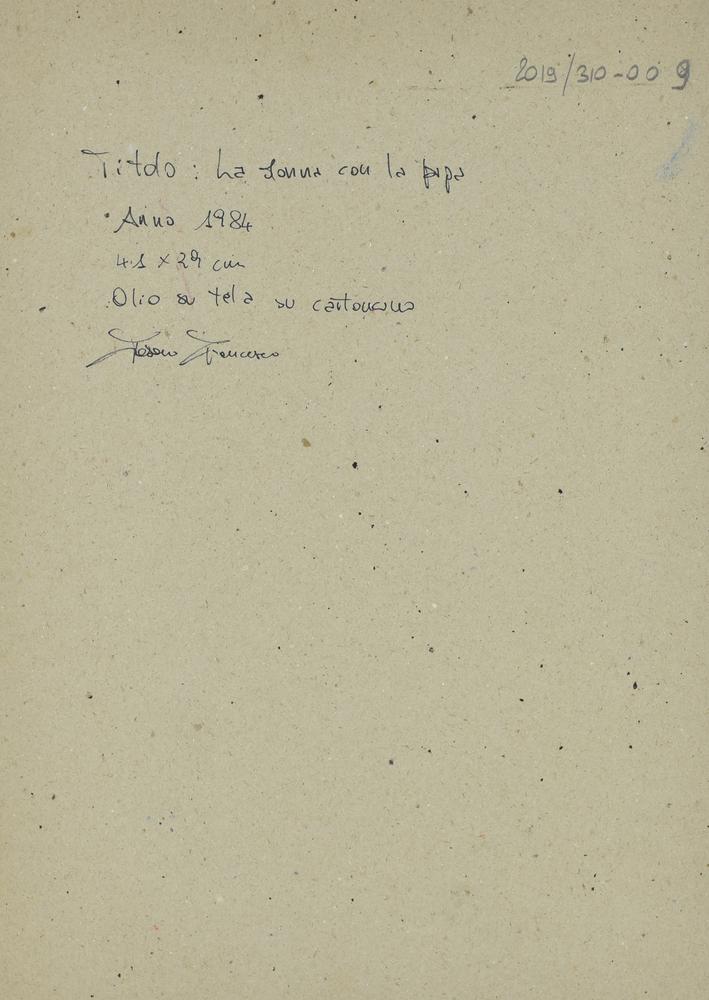 2019/310-009
Titolo : La donna con la pipa
Anno 1984
41 x 29 cm
Olio su tela su cartoncino
Francesco